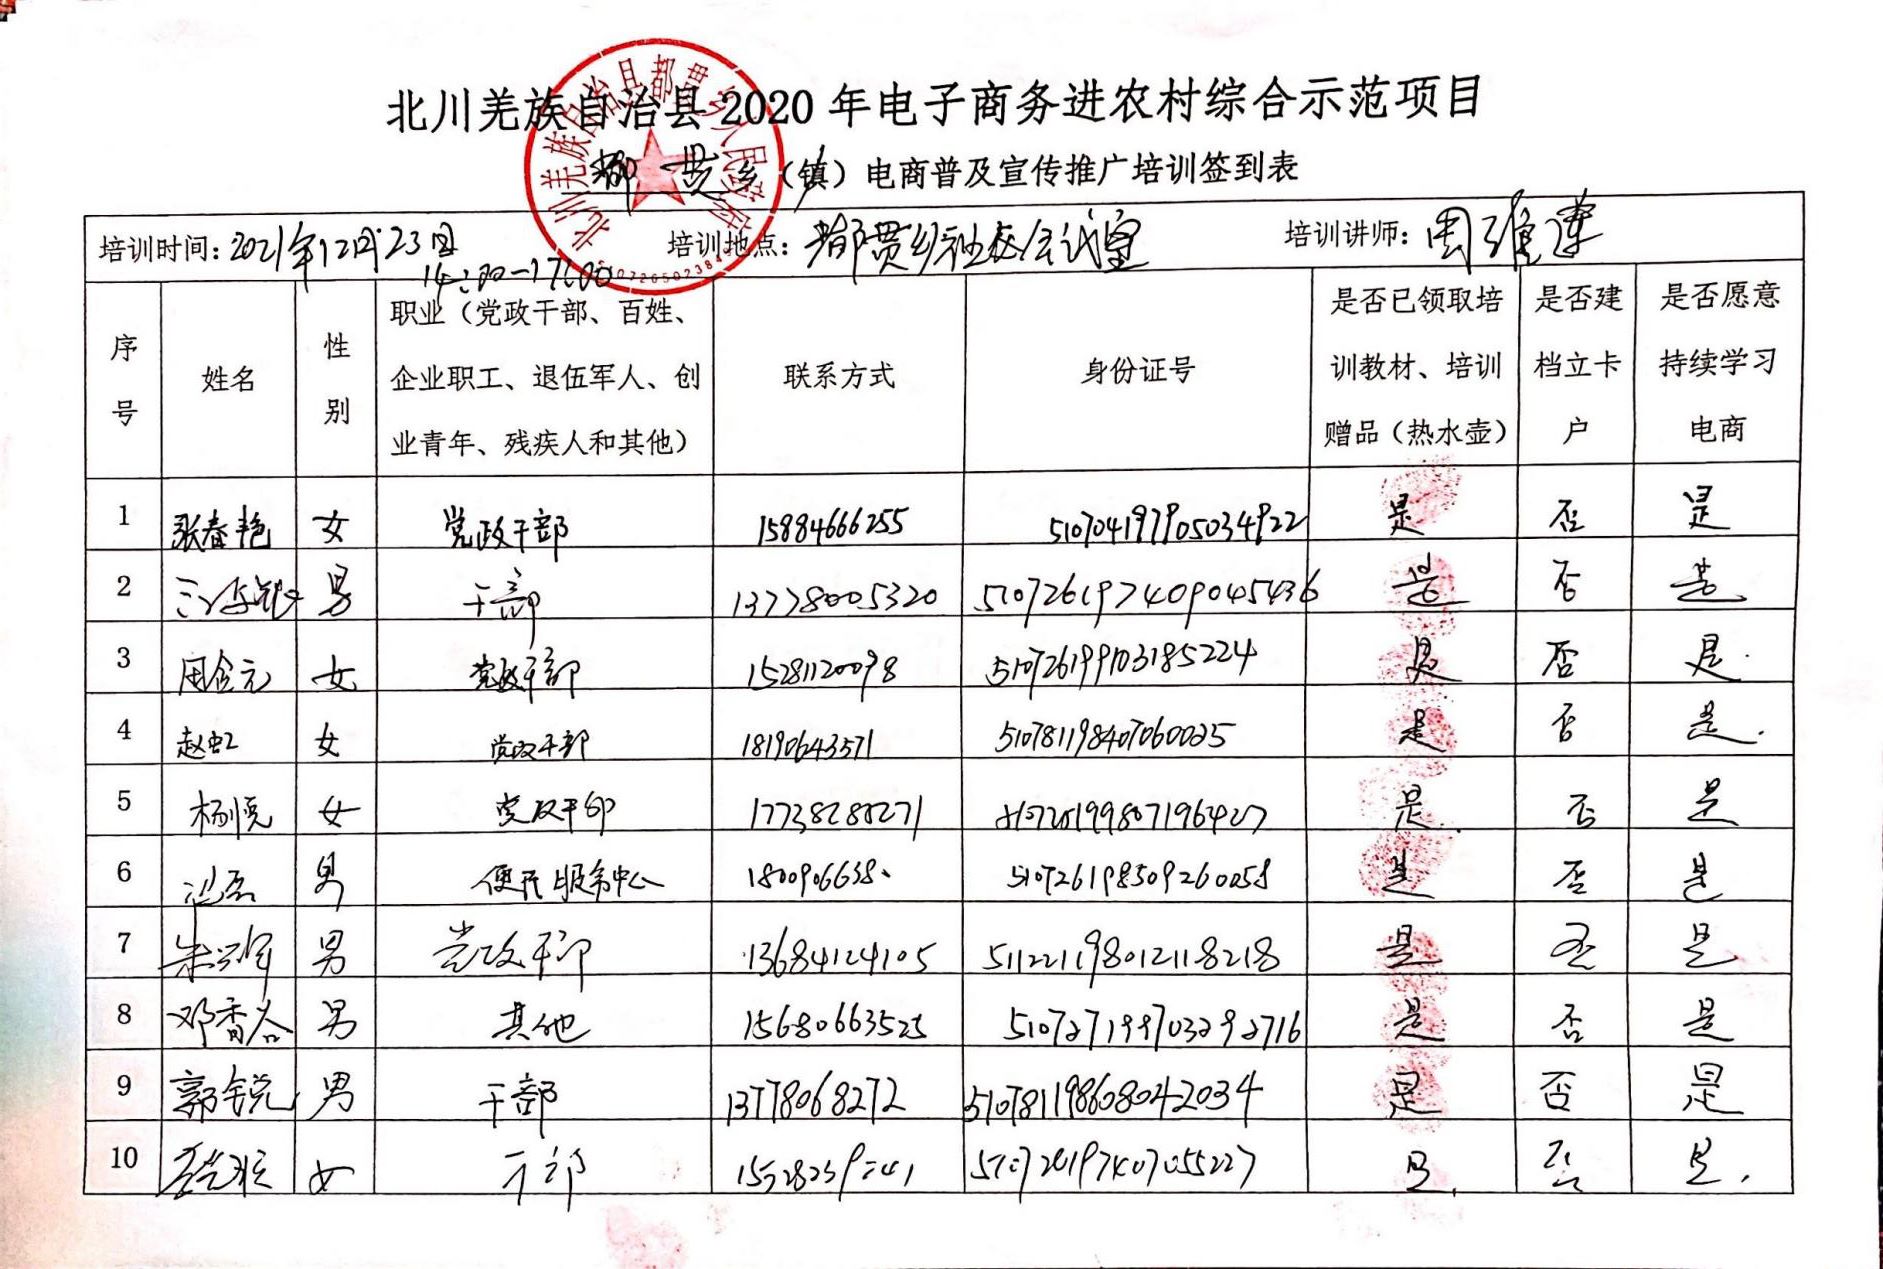 北川羌族自治县2020年电子商务进农村综合示范项目
都贯乡（镇）电商普及宣传推广培训签到表
北川羌族自治县都贯乡人民政府
培训时间：2021年12月23日 培训地点：都贯乡社区会议室 培训讲师：周
14:00-17:00
序号 姓名 性别 职业（党政干部、百姓、企业职工、退伍军人、创业青年、残疾人和其他） 联系方式 身份证号 是否已领取培训教材、培训赠品（热水壶） 是否建档立卡户 是否愿意持续学习电商
1 张春艳 女 党政干部 15884666255 510704197905034922 是 否 是
2 男 干部 13778005320 510726197409045436 是 否 是
3 女 党政干部 15281120098 510726199103185224 是 否 是
4 赵虹 女 党政干部 18190643571 510781198407060025 是 否 是
5 杨悦 女 党政干部 17738288271 是 否 是
6 男 便民服务中心 510726198509260058 是 否 是
7 男 党政干部 13684124105 511221198012118218 是 否 是
8 邓香谷 男 其他 15680663525 510727199703292716 是 否 是
9 郭锐 男 干部 13778068272 510781198608042034 是 否 是
10 女 干部 是 否 是